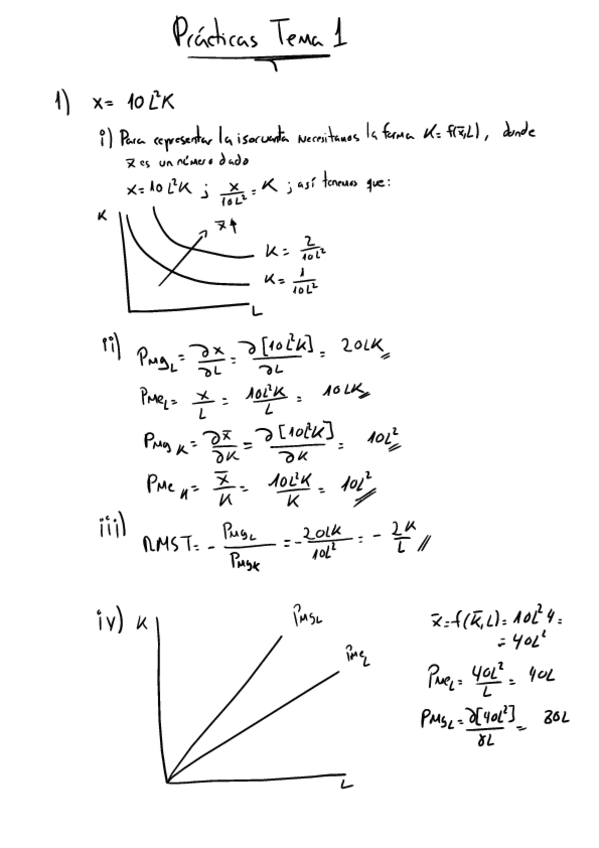 Prácticas Tema 1
1) x = 10 L²K
i) Para representar la isocuanta necesitamos la forma K = f(x̄,L), donde
x̄ es un número dado
x = 10 L²K ; x/10L² = K ; así tenemos que:
K
x̄↑
K = 2/10L²
K = 1/10L²
L
ii) PMg_L = ∂x/∂L = ∂[10L²K]/∂L = 20LK
PMe_L = x/L = 10L²K/L = 10LK
PMg_K = ∂x̄/∂K = ∂[10L²K]/∂K = 10L²
PMe_K = x̄/K = 10L²K/K = 10L²
iii) RMST = - PMg_L/PMg_K = - 20LK/10L² = - 2K/L //
iv) K
PMg_L
PMe_L
L
x̄ = f(K̄,L) = 10L²4 =
= 40L²
PMe_L = 40L²/L = 40L
PMg_L = ∂[40L²]/∂L = 80L